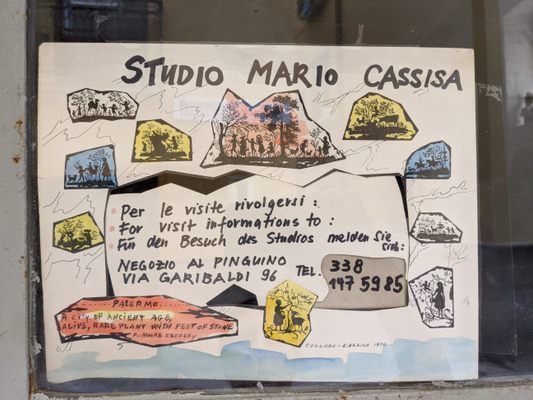 STUDIO MARIO CASSISA
Per le visite rivolgersi:
For visit informations to:
Für den Besuch des Studios melden Sie
sich:
NEGOZIO AL PINGUINO
VIA GARIBALDI 96
TEL. 338
147 59 85
PALERMO
A CITY OF ANCIENT AGE,
ALIVE, RARE PLANT WITH FEET OF STONE